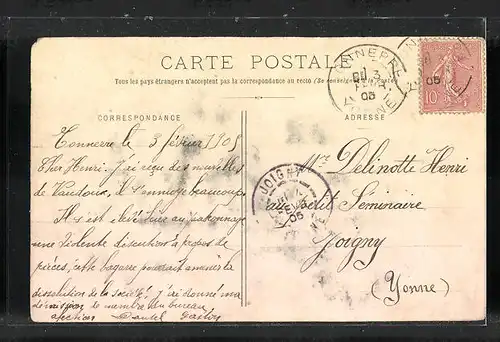 CARTE POSTALE
Tous les pays étrangers n'acceptent pas la correspondance au recto (Se renseigner
CORRESPONDANCE
ADRESSE
Tonnerre le 3 février 1905
Cher Henri. J'ai reçu des nouvelles
de il s'ennuie beaucoup.
Il s'est élevé au
une violente discution à propos de
pièces, cette bagarre pourrait amener la
dissolution de la société. J'ai donné ma
démission de membre du bureau
Daniel
Mr Delinotte Henri
au petit Séminaire
Joigny
(Yonne)
TONNERRE
YONNE
3
FEVR
05
05
JOIGNY
YONNE
05
10